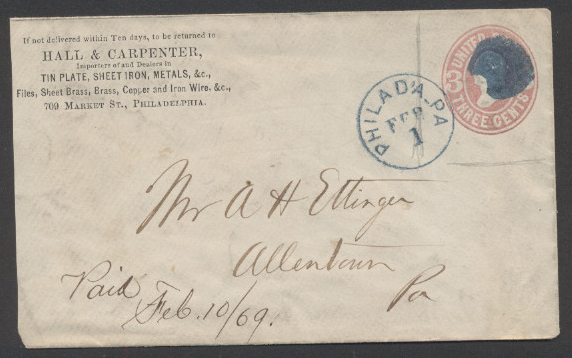 If not delivered within Ten days, to be returned to
HALL & CARPENTER,
Importers of and Dealers in
TIN PLATE, SHEET IRON, METALS, &c.,
Files, Sheet Brass, Brass, Copper and Iron Wire, &c.,
709 MARKET ST., PHILADELPHIA.
PHILAD'A. PA
FEB
1
UNITED
3
THREE CENTS
Mr A H Ettinger
Allentown
Pa
Paid Feb. 10/69.